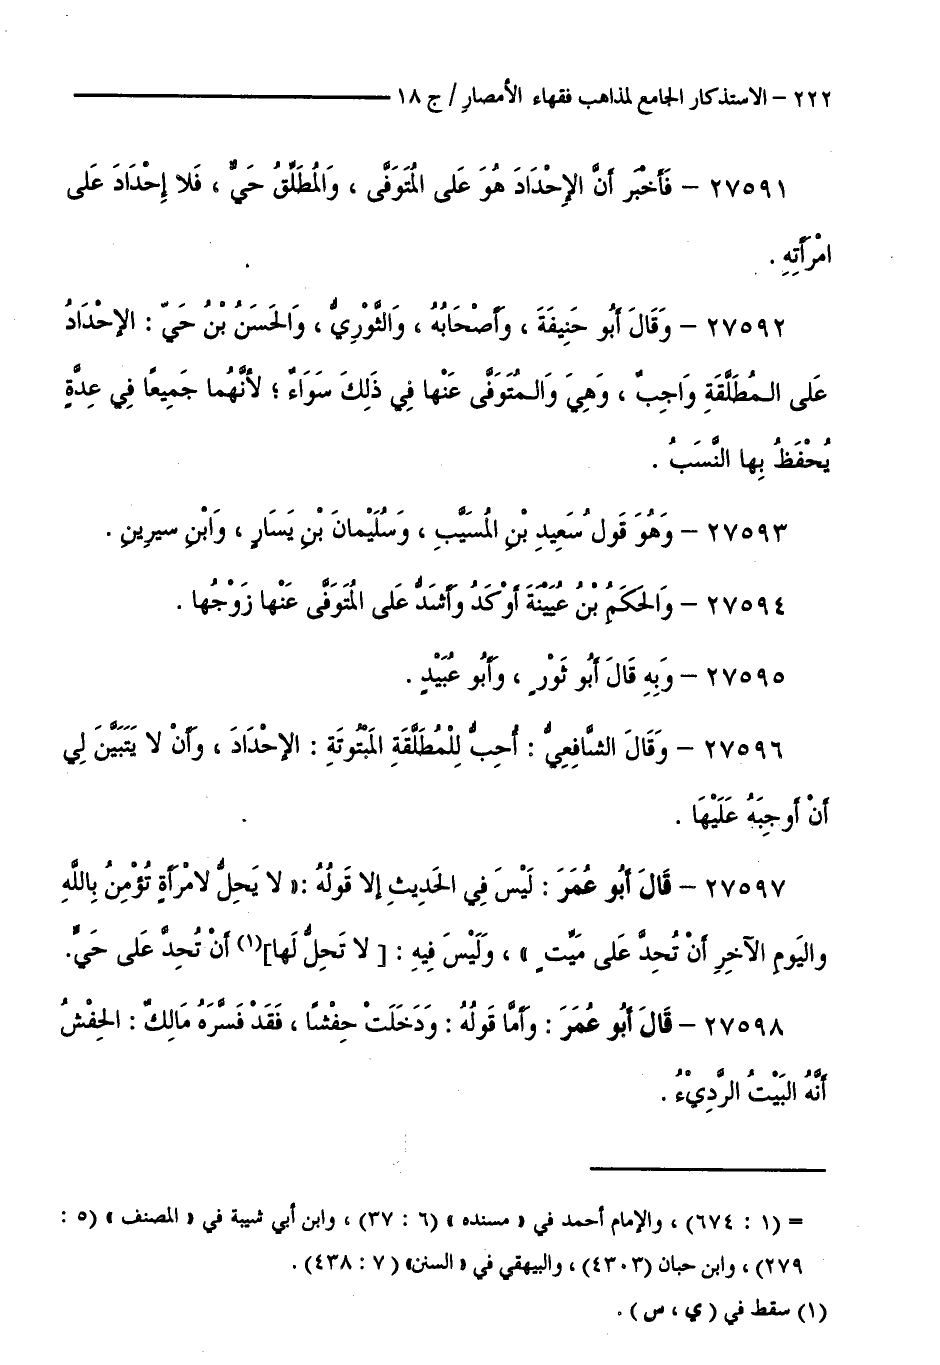 ٢٢٢ – الاستذكار الجامع لمذاهب فقهاء الأمصار / ج ١٨
٢٧٥٩١ – فَأَخْبَرَ أَنَّ الإِحْدَادَ هُوَ عَلَى المُتَوَفَّى ، وَالمُطَلِّقُ حَيٌّ ، فَلا إِحْدَادَ عَلَى
امْرَأَتِهِ .
٢٧٥٩٢ – وَقَالَ أَبُو حَنِيفَةَ ، وَأَصْحَابُهُ ، وَالثَّوْرِيُّ ، وَالحَسَنُ بْنُ حَيّ : الإِحْدَادُ
عَلى المُطَلَّقَةِ وَاجِبٌ ، وَهِيَ وَالمُتَوَفَّى عَنْها فِي ذَلِكَ سَوَاءٌ ؛ لأَنَّهُما جَمِيعًا فِي عِدَّةٍ
يُحْفَظُ بِها النَّسَبُ .
٢٧٥٩٣ – وَهُوَ قَولُ سَعِيدِ بْنِ المُسَيَّبِ ، وَسُلَيْمانَ بْنِ يَسَارٍ ، وَابْنِ سيرِينِ .
٢٧٥٩٤ – وَالحَكَمُ بْنُ عُيَيْنَةَ أَوكَدُ وَأَشَدُّ عَلى المُتَوَفَّى عَنْها زَوْجُها .
٢٧٥٩٥ – وَبِهِ قَالَ أَبُو ثَوْرٍ ، وَأَبُو عُبَيْدٍ .
٢٧٥٩٦ – وَقَالَ الشَّافِعِيُّ : أُحِبُّ لِلْمُطَلَّقَةِ المَبْتُوتَةِ : الإِحْدَادَ ، وَأَنْ لا يَتَبَيَّنَ لِي
أَنْ أُوجِبَهُ عَلَيْهَا .
٢٧٥٩٧ – قَالَ أَبُو عُمَرَ : لَيْسَ فِي الحَدِيثِ إِلا قَولُهُ :« لا يَحِلُّ لامْرَأَةٍ تُؤْمِنُ بِاللَّهِ
واليَومِ الآخِرِ أَنْ تُحِدَّ عَلى مَيِّتٍ » ، وَلَيْسَ فِيهِ : [ لا تَحِلُّ لَها](١) أَنْ تُحِدَّ عَلى حَيٍّ.
٢٧٥٩٨ – قَالَ أَبُو عُمَرَ : وَأَمَّا قَولُهُ : وَدَخَلَتْ حِفْشًا ، فَقَدْ فَسَّرَهُ مَالِكٌ : الحِفْشُ
أَنَّهُ البَيْتُ الرَّدِيْءُ .
= (١ : ٦٧٤) ، والإمام أحمد في « مسنده » (٦ : ٣٧) ، وابن أبي شيبة في « المصنف » (٥ :
٢٧٩) ، وابن حبان (٤٣٠٣) ، والبيهقي في « السنن» (٧ : ٤٣٨) .
(١) سقط في ( ي ، س ) .